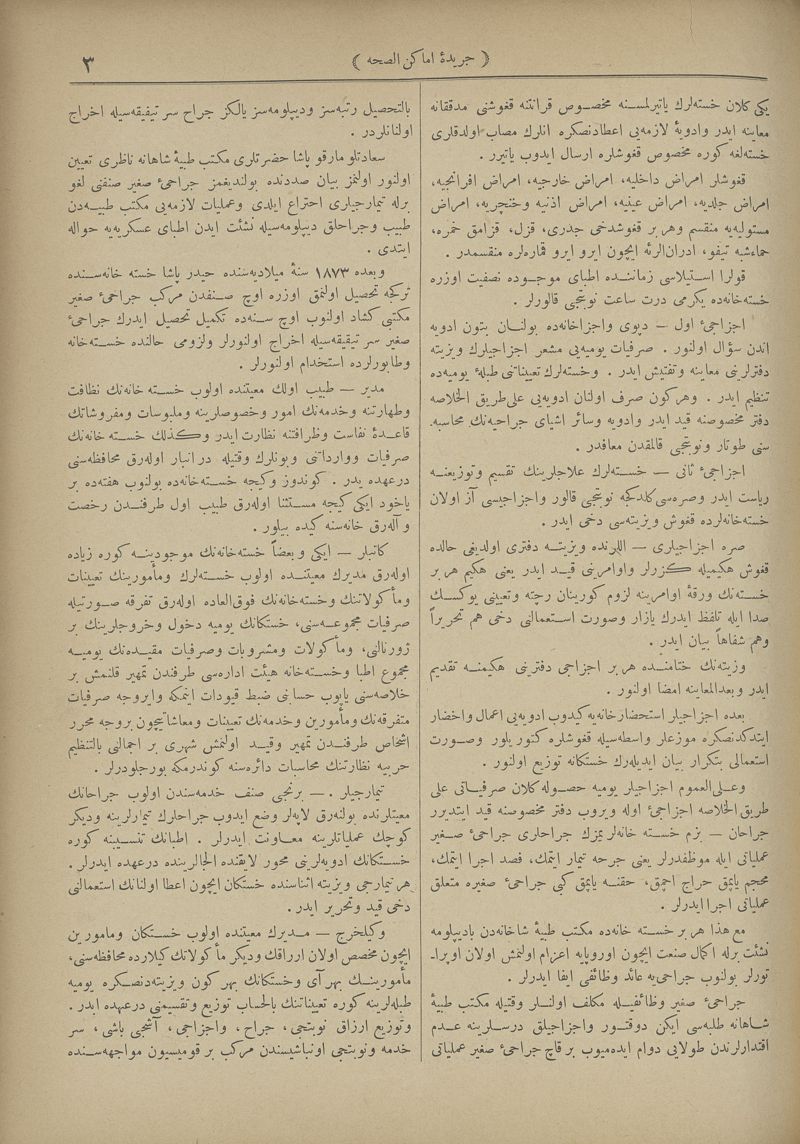 ﴿ جريدۀ اماكن الصحه ﴾
٣
يكى كلان خسته‌لرك ياتيرلمسنه مخصوص قرانتنه قغوشنى مدققانه
معاينه ايدر وادويۀ لازمه‌يى اعطادنصكره انلرك مصاب اولدقلرى
خسته‌لغه كوره مخصوص قغوشلره ارسال ايدوب ياتيرر .
قغوشلر امراض داخليه، امراض خارجيه، امراض افرانجيه،
امراض جلديه، امراض عينيه، امراض اذنيه وخنجريه، امراض
مستوليه‌يه منقسم وهر بر قغوشدخى جدرى، قزل، قزامق حمره،
حماءشبه تيفو، ادران‌الرئه ايچون ايرو ايرو قماره‌لره منقسمدر .
قولرا استيلاسى زماننده اطباى موجوده نصفيت اوزره
خسته‌خانه‌ده يكرمى درت ساعت نوبتجى قالورلر .
اجزاجىء اول — ديوى واجزاخانه‌ده بولنان بتون ادويه
اندن سؤال اولنور . صرفيات يوميه‌يى مشعر اجزاجيلرك ويزيته
دفترلرينى معاينه وتفتيش ايدر . وخسته‌لرك تعييناتنى طبلۀ يوميه‌ده
تنظيم ايدر . وهركون صرف اولنان ادويه‌يى على‌طريق الخلاصه
دفتر مخصوصنه قيد ايدر وادويه وسائر اشياى جراحيه‌نك محاسبه-
سنى طوتار ونوبتجى قالمقدن معافدر .
اجزاجىء ثانى — خسته‌لرك علاجلرينك تقسيم وتوزيعنه
رياست ايدر وصره‌سى كلدكجه نوبتجى قالور واجزاجيسى آز اولان
خسته‌خانه‌لرده قغوش ويزيته‌سى دخى ايدر .
صره اجزاجيلرى — اللرنده ويزيته دفترى اولديغى حالده
قغوش حكيميله كزرلر واوامرينى قيد ايدر يعنى حكيم هر بر
خسته‌نك ورقۀ اوامرينه لزوم كورينان رچته وتعيينى يوكسك
صدا ايله تلفظ ايدرك يازار وصورت استعمالنى دخى هم تحريراً
وهم شفاهاً بيان ايدر .
وزيته‌نك ختامنده هر بر اجزاجى دفترينى حكيمنه تقديم
ايدر وبعدالمعاينه امضا اولنور .
بعده اجزاجيلر استحضارخانه‌يه كيدوب ادويه‌يى اعمال واحضار
ايتدكدنصكره موزعلر واسطه‌سيله قغوشلره كتوريلور وصورت
استعمالى بتكرار بيان ايديله‌رك خستكانه توزيع اولنور .
وعلى‌العموم اجزاجيلر يوميه حصوله كلان صرفياتى على
طريق الخلاصه اجزاجىء اوله ويروب دفتر مخصوصنه قيد ايتديرر
جراحان — بزم خسته خانه‌لريمزك جراحلرى جراحىء صغير
عملياتى ايله موظفدرلر يعنى جرحه تيمار ايتمك، فصد اجرا ايتمك،
محجم ياپمق حراج اچمق، حقنه ياپمق كبى جراحىء صغيره متعلق
عملياتى اجرا ايدرلر .
مع هذا هر بر خسته خانه‌ده مكتب طبيۀ شاخانه‌دن باديپلومه
نشئت برله اكمال صنعت ايچون اوروپايه اعزام اولنمش اولان اوپرا-
تورلر بولنوب جراحى‌يه عائد وظائفى ايفا ايدرلر .
جراحىء صغير وظائفيله مكلف اولنلر وقتيله مكتب طبيۀ
شاهانه طلبه‌سى ايكن دوقتور واجزاجيلق درسلرينه عدم
اقتدارلرندن طولايى دوام ايده‌ميوب بر قاچ جراحىء صغير عملياتى
بالتحصيل رتبه‌سز وديپلومه‌سز يالكز جراح سرتيفيقه‌سيله اخراج
اولنانلردر .
سعادتلو مارقو پاشا حضرتلرى مكتب طبيۀ شاهانه ناظرى تعيين
اولنور اولنمز بيان صددنده بولنديغمز جراحىء صغير صنفنى لغو
برله تيمارجيلرى احتراع ايلدى وعمليات لازمه‌يى مكتب طبيه‌دن
طبيب وجراحلق ديپلومه‌سيله نشئت ايدن اطباى عسكريه‌يه حواله
ايتدى .
وبعده ١٨٧٣ سنۀ ميلاديه‌سنده حيدر پاشا خسته خانه‌سنده
تركجه تحصيل اولنمق اوزره اوچ صنفدن مركب جراحىء صغير
مكتبى كشاد اولنوب اوچ سنه‌ده تكميل تحصيل ايدرك جراحىء
صغير سرتيفيقه‌سيله اخراج اولنورلر ولزومى حالنده خسته‌خانه
وطابورلرده استخدام اولنورلر .
مدير — طبيب اولك معيتنده اولوب خسته خانه‌نك نظافت
وطهارتنه وخدمه‌نك امور وخصوصلرينه وملبوسات ومفروشاتك
قاعدۀ نفاست وظرافتنه نظارت ايدر وكذلك خسته خانه‌نك
صرفيات ووارداتنى وبونلرك وقتيله درانبار اوله‌رق محافظه‌سنى
درعهده يدر . كوندوز وكيجه خسته‌خانه‌ده بولنوب هفته‌ده بر
ياخود ايكى كيجه مستثنا اوله‌رق طبيب اول طرفندن رخصت
وآله‌رق خانه‌سنه كيده بيلور .
كاتبلر — ايكى وبعضاً خسته‌خانه‌نك موجودينه كوره زياده
اوله‌رق مديرك معيتنده اولوب خسته‌لرك ومأمورينك تعيينات
ومأكولاتنك وخسته‌خانه‌نك فوق‌العاده اوله‌رق تفرقه صورتيله
صرفيات مجموعه‌سنى، خستكانك يوميه دخول وخروجلرينك بر
ژورنالنى، ومأكولات ومشروبات وصرفيات مقيده‌نك يوميه
مجموع اطبا وخسته‌خانه هيئت اداره‌سى طرفندن تمهير قلنمش بر
خلاصه‌سنى ياپوب حسابنى ضبط قيودات ايتمكه وايروجه صرفيات
متفرقه‌نك ومأمورين وخدمه‌نك تعيينات ومعاشاتيچون بروجه محرر
اشخاص طرفندن تمهير وقيد اولنمش شهرى بر اجمالنى بالتنظيم
حربيه نظارتنك محاسبات دائره‌سنه كوندرمكه بورجلودرلر .
تيمارجيلر . — برنجى صنف خدمه‌سندن اولوب جراحانك
معيتلرنده بولنه‌رق لاپه‌لر وضع ايدوب جراحلرك تيمارلرينه وديكر
كوچك عملياتلرينه معاونت ايدرلر . اطبانك تنسيبنه كوره
خستكانك ادويه‌لرينى محور لايقنده الجالرينده درعهده ايدرلر .
هر تيمارجى ويزيته اثناسنده خستكان ايچون اعطا اولنانك استعمالنى
دخى قيد وتحرير ايدر .
وكيلخرج — مديرك معيتنده اولوب خستكان ومامورين
ايچون مخصص اولان ارزاقك وديكر مأكولاتك كيلارده محافظه‌سنى،
مأمورينك بهر آى وخستكانك بهر كون ويزيته‌دنصكره يوميه
طبله‌لرينه كوره تعييناتنك بالحساب توزيع وتقسيمنى درعهده ايدر .
وتوزيع ارزاق نوبتجى، جراح، واجزاجى، آشجى باشى، سر
خدمه ونوبتجى اونباشيسندن مركب بر قوميسيون مواجهه‌سنده